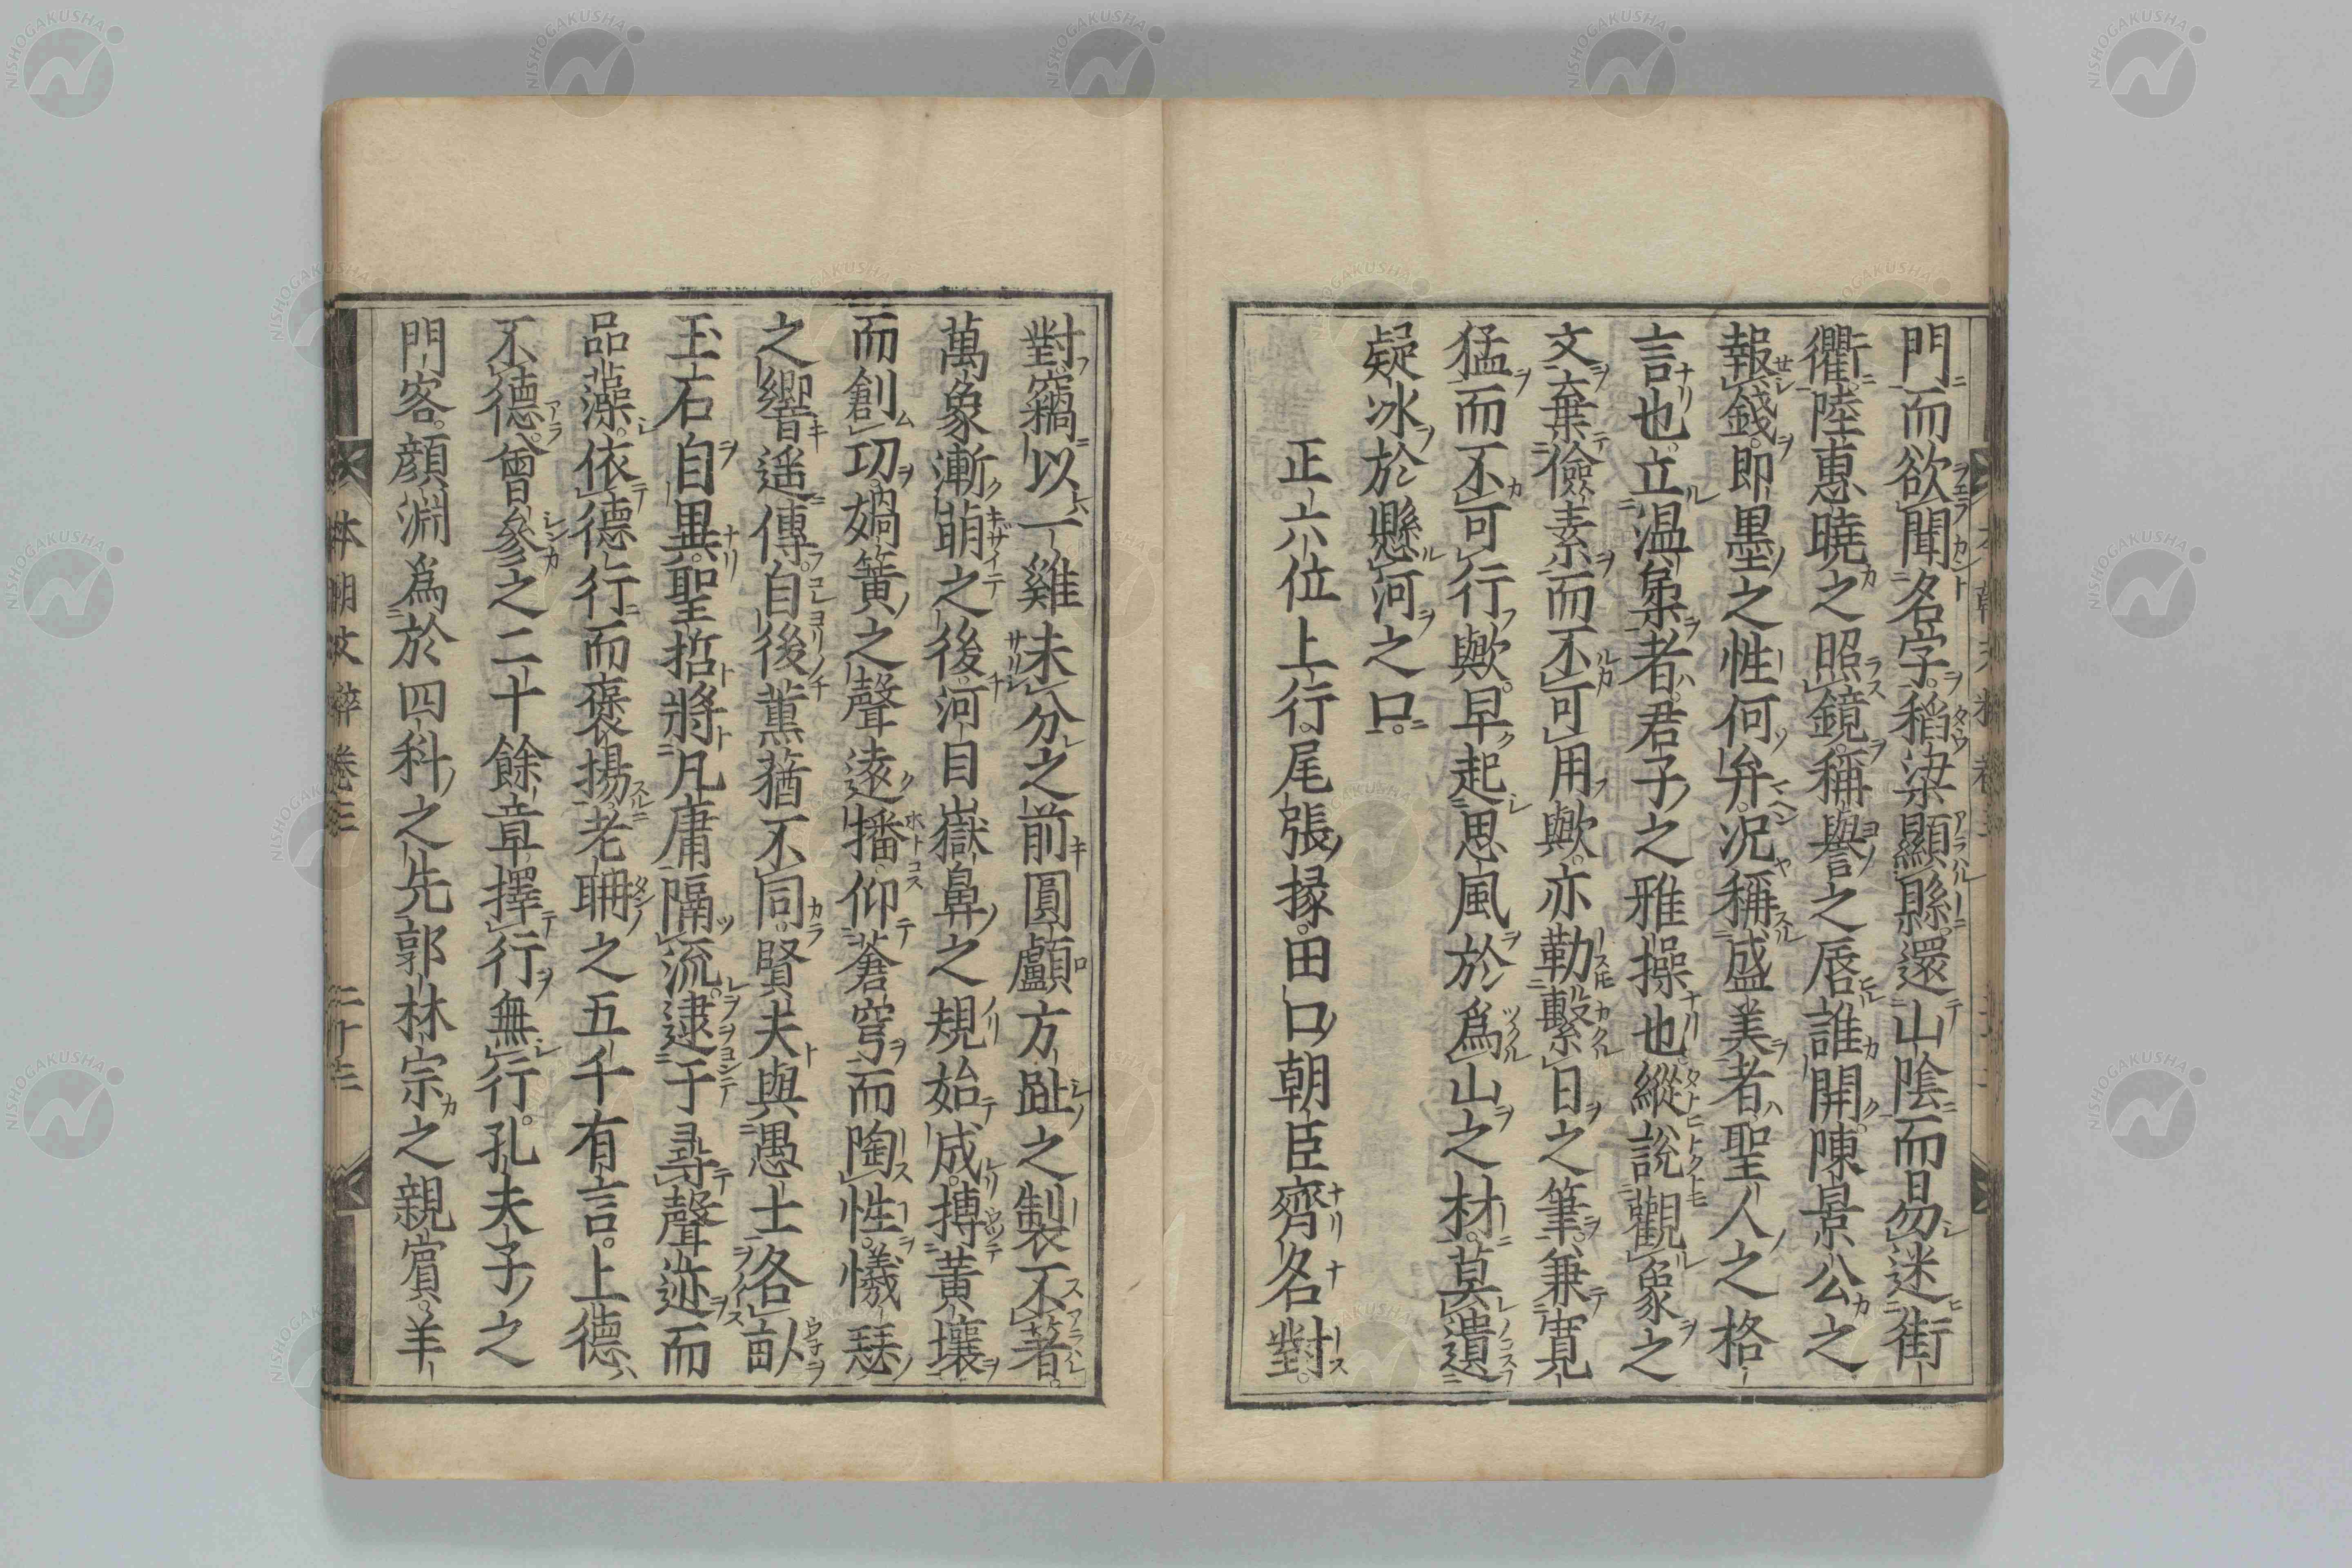 門而欲聞名字。稻粱顯縣。還山陰而易迷街
衢。陸惠曉之照鏡。稱譽之唇誰開。陳景公之
報錢。即墨之性何弁。況稱盛美者聖人之格
言也。立溫梟者。君子之雅操也。縱說觀象之
文。棄儉素而不可用歟。亦勒繫日之筆。兼寬
猛而不可行歟。早起思風於爲山之材。莫遺
疑冰於懸河之口。
正六位上行。尾張掾。田口朝臣齊名對。
對。竊以一雞未分之前。圓顱方趾之製不著。
萬象漸萌之後。河目嶽鼻之規始成。摶黃壤
而創功。媧簧之聲遠播。仰蒼穹而陶性。犧瑟
之響遥傳。自後薫蕕不同。賢夫與愚士各畝
玉石自異。聖哲將凡庸隔流。逮于尋聲迹而
品藻。依德行而褒揚。老聃之五千有言。上德
不德。曾參之二十餘章。擇行無行。孔夫子之
門客。顔淵爲於四科之先。郭林宗之親賓。羊
本朝文粹卷三 二十三